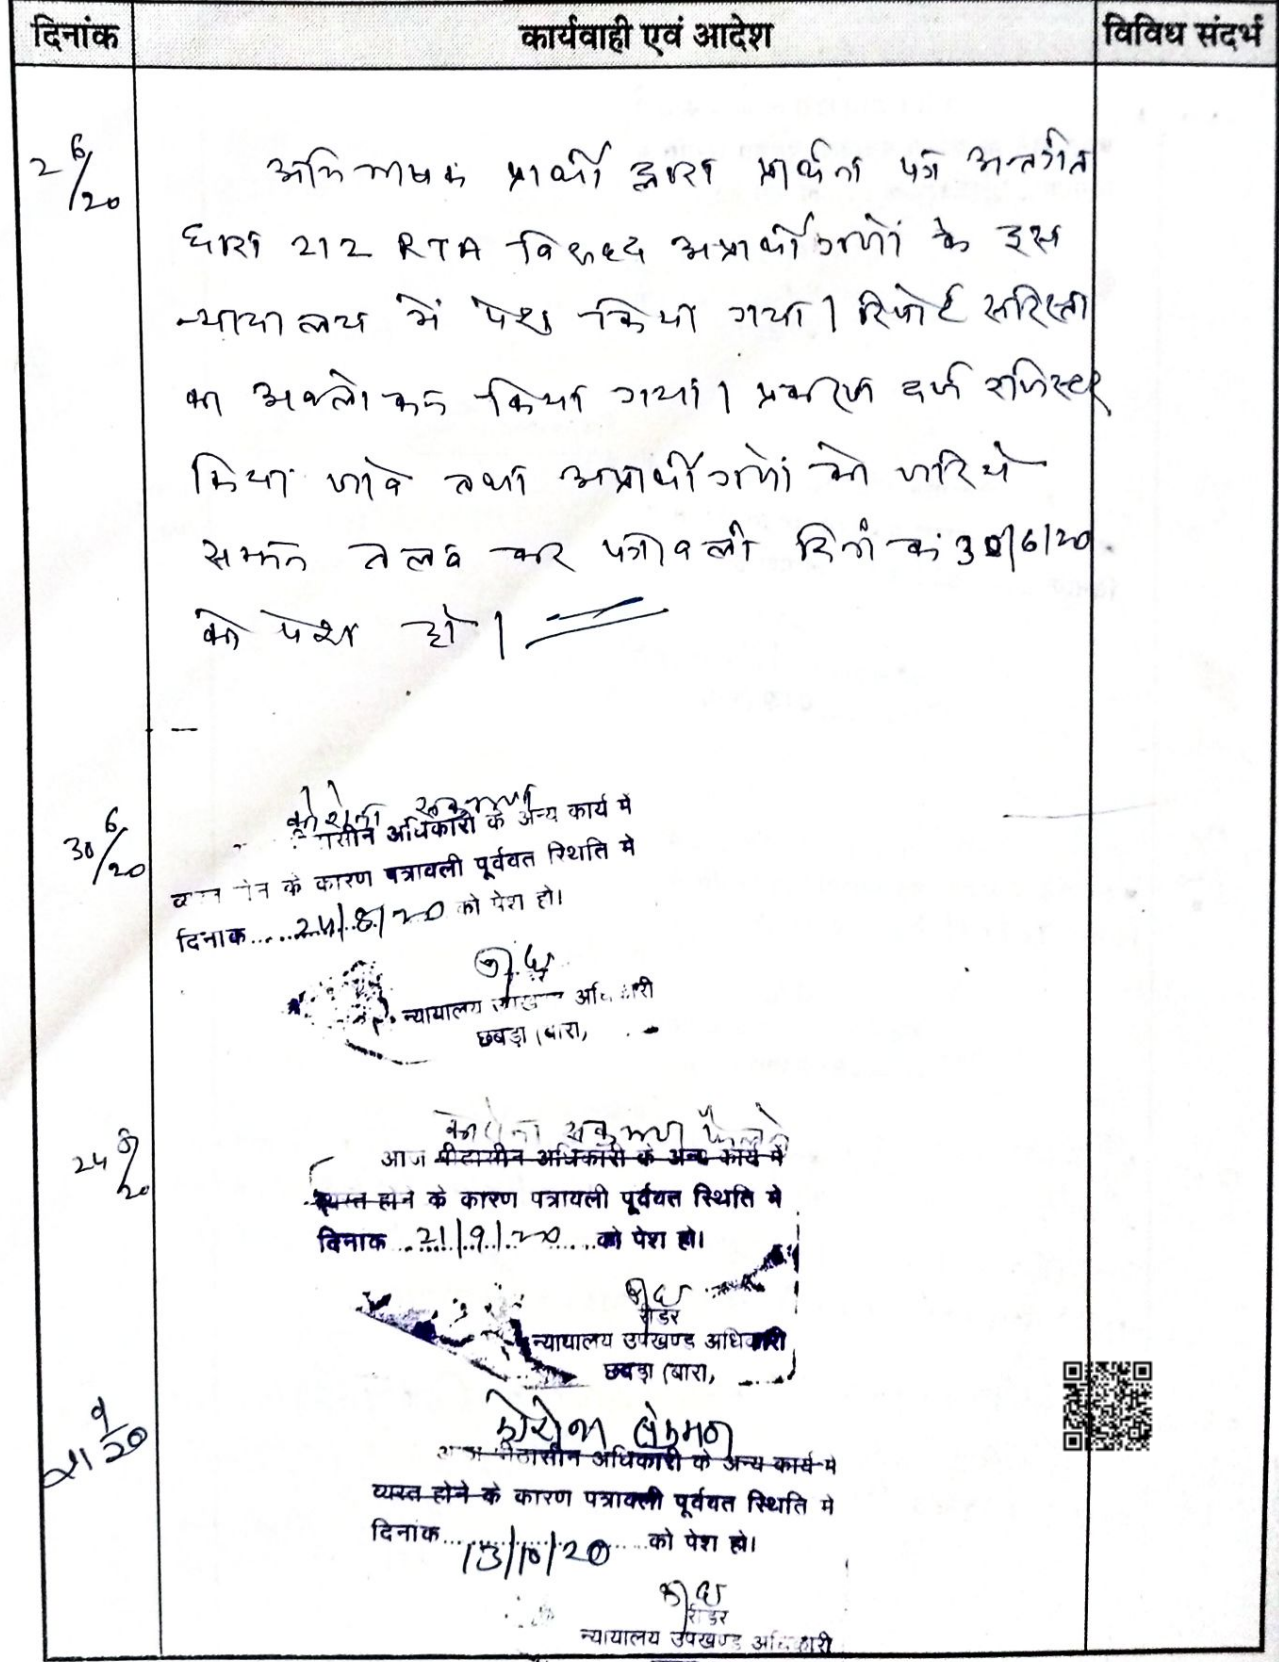 दिनांक कार्यवाही एवं आदेश विविध संदर्भ
2 6/20 अभिभाषक प्रार्थी द्वारा प्रार्थना पत्र अन्तर्गत
धारा 212 RTA विरुद्ध अप्रार्थीगणों के इस
न्यायालय में पेश किया गया। रिपोर्ट सरिस्ता
का अवलोकन किया गया। प्रकरण दर्ज रजिस्टर
किया जावे तथा अप्रार्थीगणों को जरिये
सम्मन तलब कर पत्रावली दिनांक 30/6/20
को पेश हो।
30 6/20 कोरोना संक्रमण
अधिकारी के अन्य कार्य में
के कारण पत्रावली पूर्ववत स्थिति मे
दिनाक 24/8/20 को पेश हो।
न्यायालय अधिकारी
छबड़ा (बारा,
24 8/20 कोरोना संक्रमण फैलने
आज पीठासीन अधिकारी के अन्य कार्य में
व्यस्त होने के कारण पत्रावली पूर्ववत स्थिति मे
दिनाक 21/9/20 को पेश हो।
रीडर
न्यायालय उपखण्ड अधिकारी
छबड़ा (बारा,
21 9/20 कोरोना संक्रमण
आज पीठासीन अधिकारी के अन्य कार्य मे
व्यस्त होने के कारण पत्रावली पूर्ववत स्थिति मे
दिनांक 13/10/20 को पेश हो।
रीडर
न्यायालय उपखण्ड अधिकारी